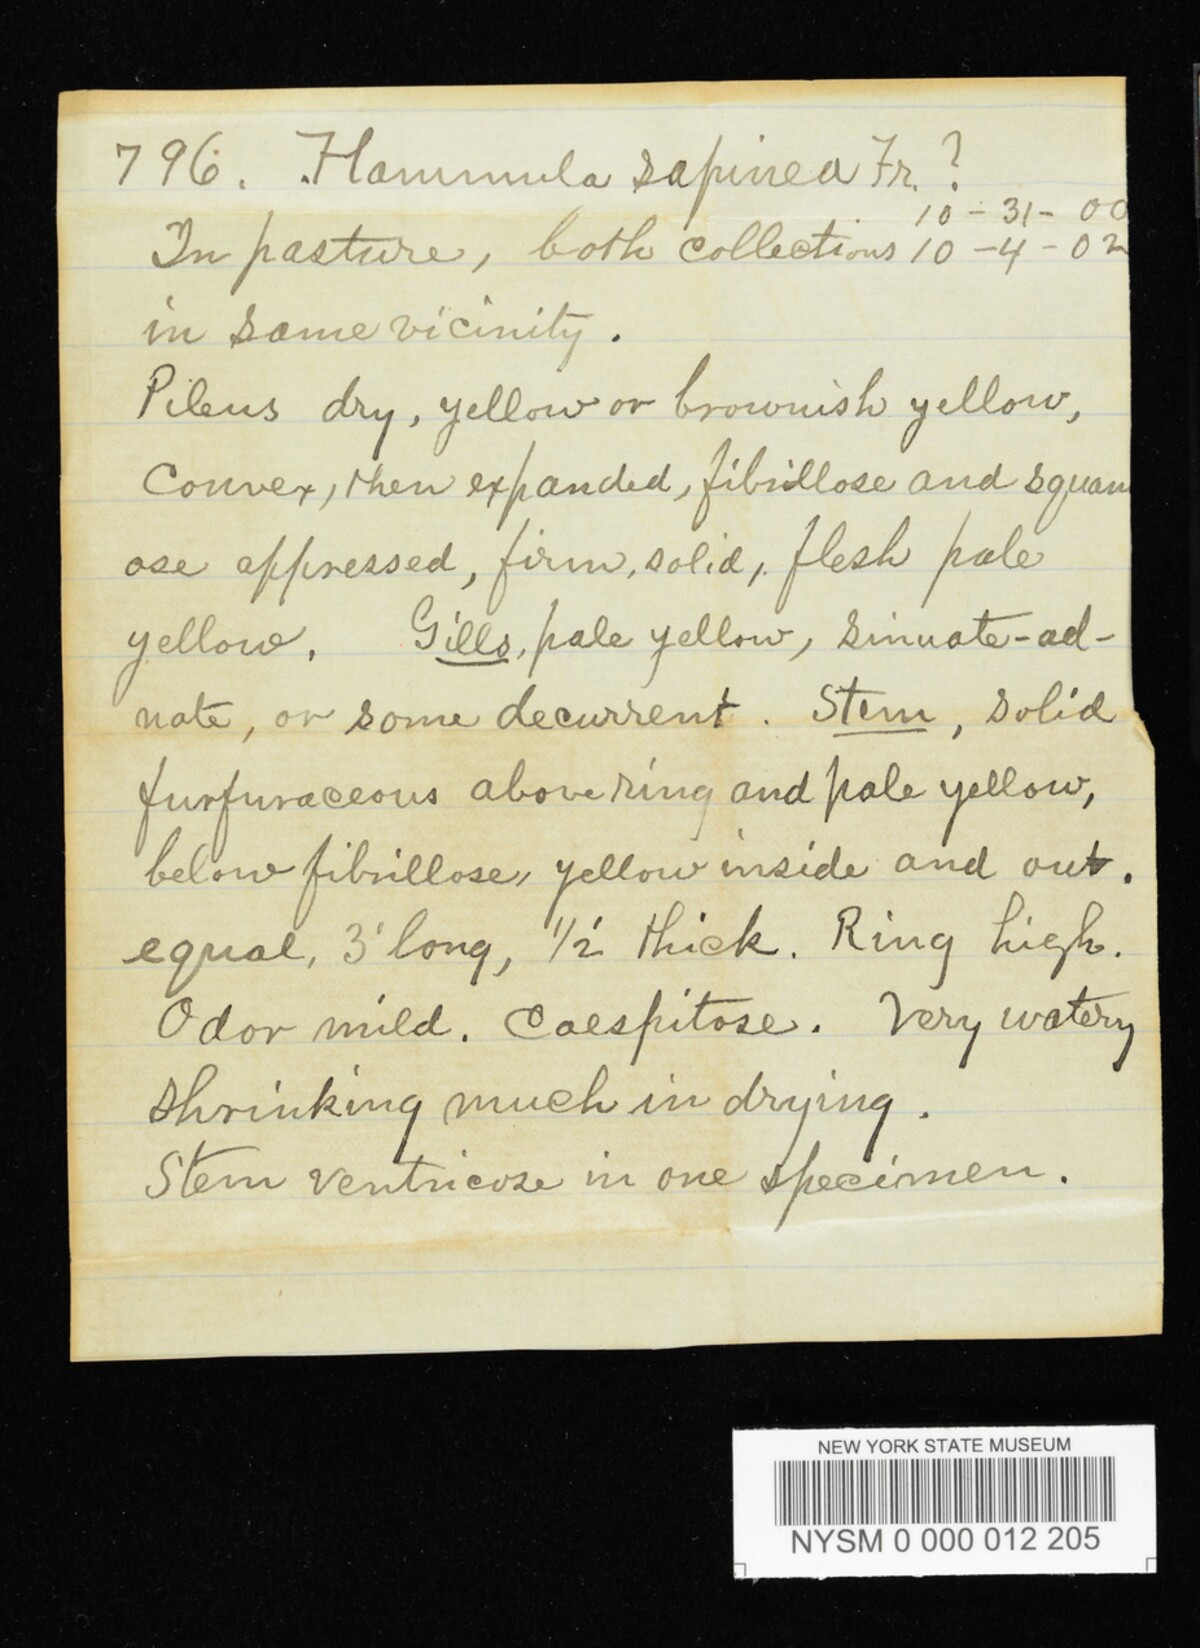 796. Flammula sapinea Fr. ?
10-31-00
In pasture, both collections 10-4-02
in same vicinity.
Pileus dry, yellow or brownish yellow,
Convex, then expanded, fibrillose and squam
ose appressed, firm, solid, flesh pale
yellow. Gills, pale yellow, sinuate-ad-
nate, or some decurrent. Stem, solid
furfuraceous above ring and pale yellow,
below fibrillose, yellow inside and out.
equal, 3' long, 1/2' thick. Ring high.
Odor mild. Caespitose. Very watery
shrinking much in drying.
Stem ventricose in one specimen.
NEW YORK STATE MUSEUM
NYSM 0 000 012 205